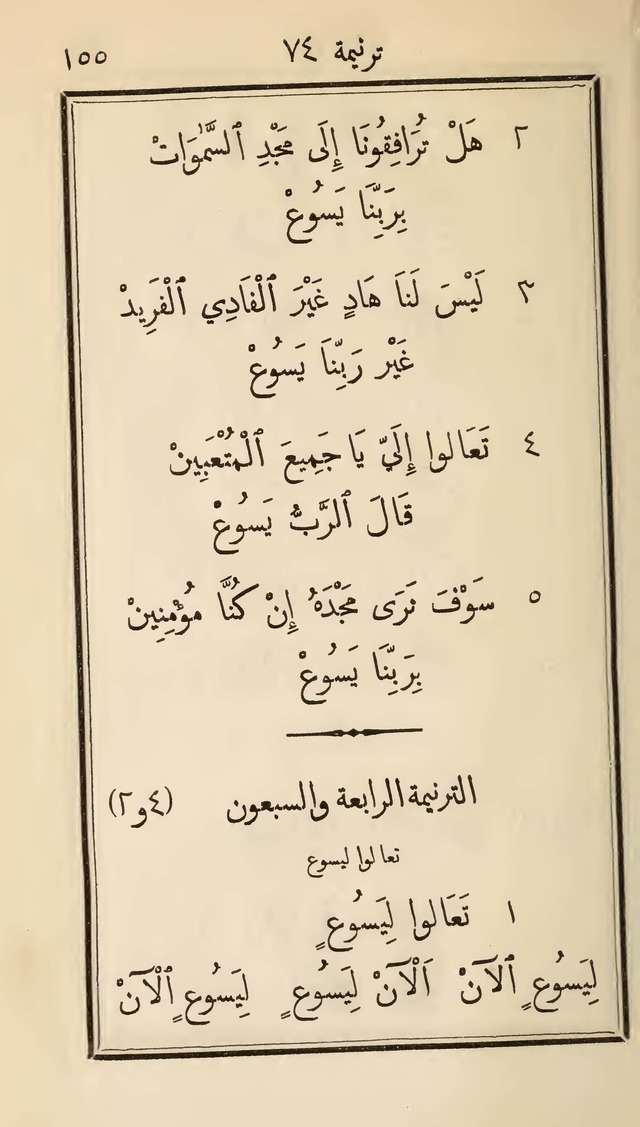 ترنيمة ٧٤ ١٥٥
٢ هَلْ تُرَافِقُونَا إِلَى مَجْدِ ٱلسَّمٰوَاتْ
بِرَبِّنَا يَسُوعْ
٣ لَيْسَ لَنَا هَادٍ غَيْرَ ٱلْفَادِي ٱلْفَرِيدْ
غَيْر رَبِّنَا يَسُوعْ
٤ تَعَالوا إِلَيّ يَا جَمِيعَ ٱلْمُتْعَبِينْ
قَالَ ٱلرَّبُّ يَسُوعْ
٥ سَوْفَ نَرَى مَجْدَهُ إِنْ كُنَّا مُؤْمِنِينْ
بِرَبِّنَا يَسُوعْ
الترنيمة الرابعة والسبعون (٤ و٢)
تعالوا ليسوع
١ تَعَالوا لِيَسُوعٍ
لِيَسُوعٍ ٱلْآنْ اَلْآنْ لِيَسُوعٍ لِيَسُوعٍ ٱلْآنْ